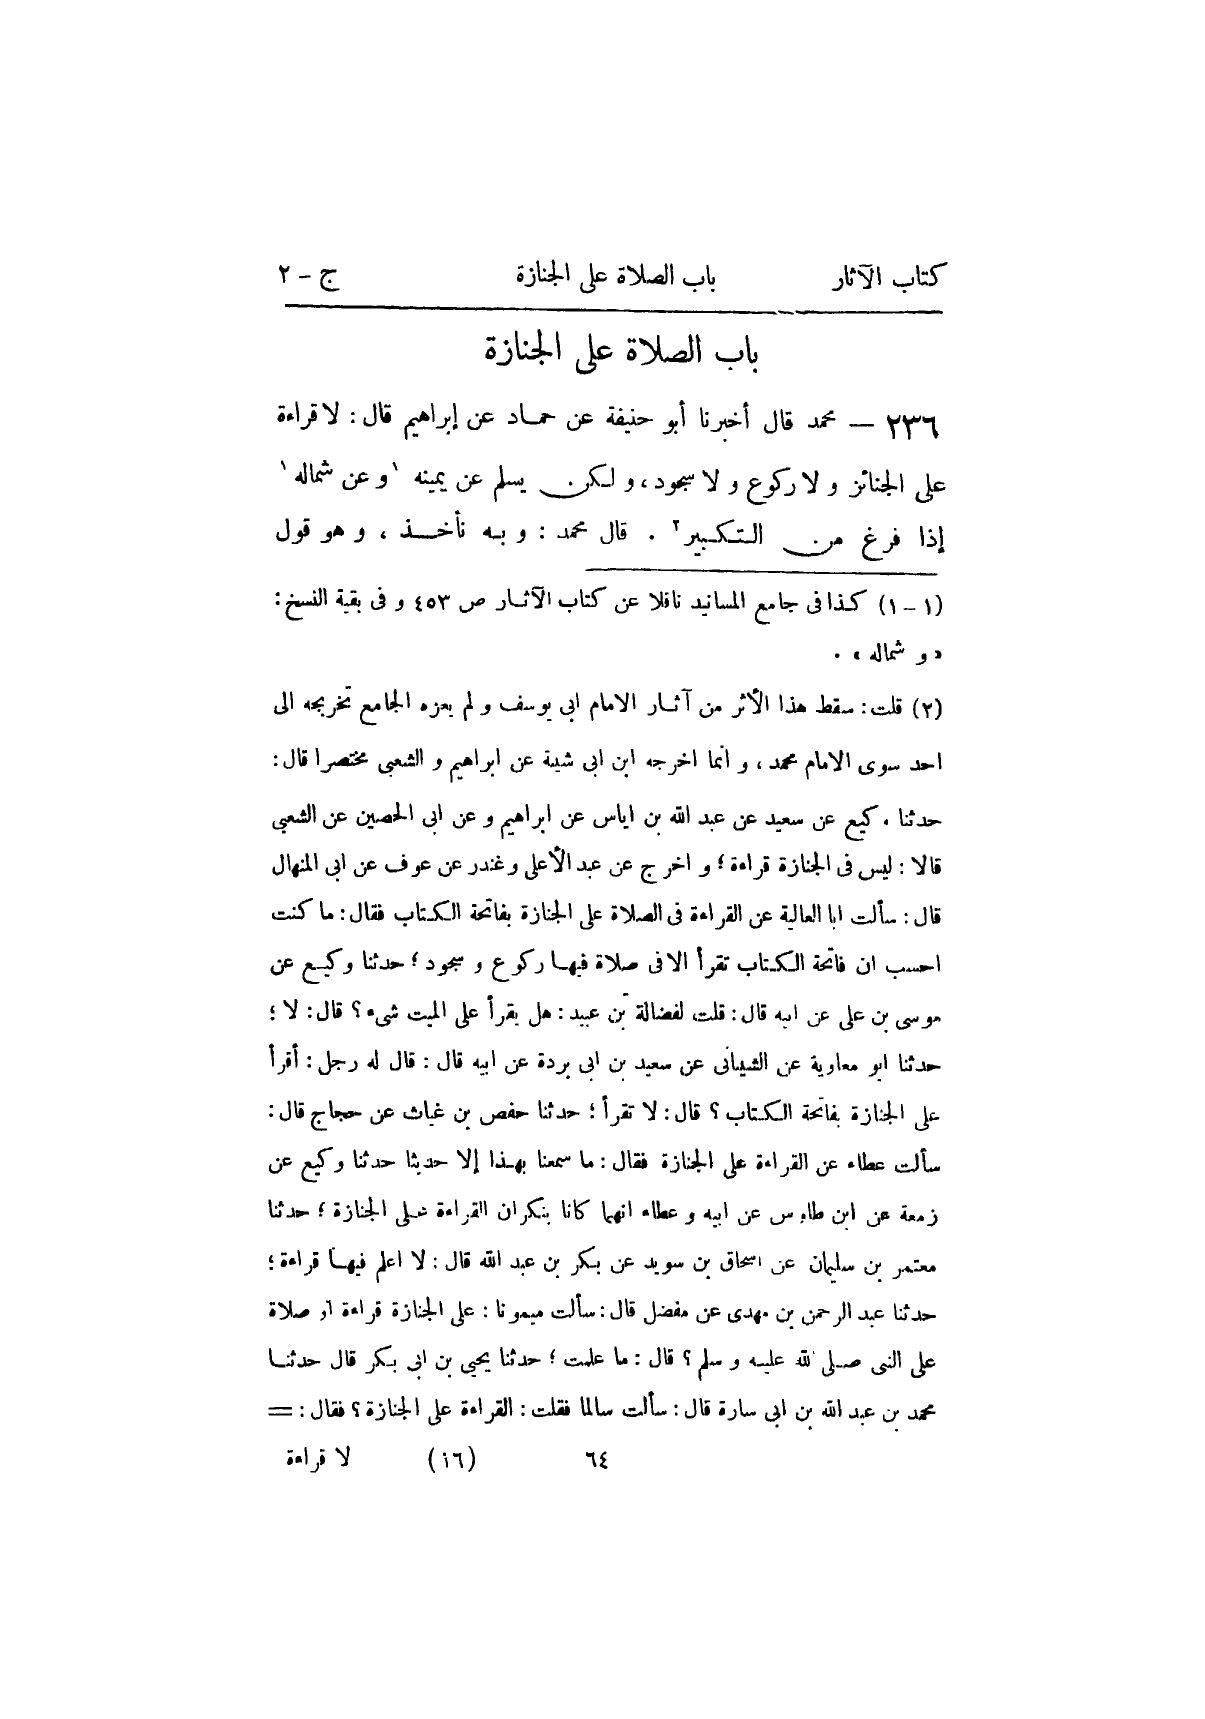 كتاب الآثار باب الصلاة على الجنازة ج - ٢
باب الصلاة على الجنازة
٢٣٦ — محمد قال أخبرنا أبو حنيفة عن حماد عن إبراهيم قال : لا قراءة
على الجنائز و لا ركوع و لا سجود ، و لكن يسلم عن يمينه ١و عن شماله١
إذا فرغ من التكبير٢ . قال محمد : و به نأخذ ، و هو قول
(١ - ١) كذا فى جامع المسانيد ناقلا عن كتاب الآثار ص ٤٥٣ و فى بقية النسخ :
« و شماله » .
(٢) قلت : سقط هذا الأثر من آثار الامام ابى يوسف و لم يعزه الجامع تخريجه الى
احد سوى الامام محمد ، و انما اخرجه ابن ابى شيبة عن ابراهيم و الشعبى مختصرا قال :
حدثنا وكيع عن سعيد عن عبد الله بن اياس عن ابراهيم و عن ابى الحصين عن الشعبى
قالا : ليس فى الجنازة قراءة ؛ و اخرج عن عبد الأعلى و غندر عن عوف عن ابى المنهال
قال : سألت ابا العالية عن القراءة فى الصلاة على الجنازة بفاتحة الكتاب فقال : ما كنت
احسب ان فاتحة الكتاب تقرأ الا فى صلاة فيها ركوع و سجود ؛ حدثنا وكيع عن
موسى بن على عن ابيه قال : قلت لفضالة بن عبيد : هل يقرأ على الميت شىء ؟ قال : لا ؛
حدثنا ابو معاوية عن الشيبانى عن سعيد بن ابى بردة عن ابيه قال : قال له رجل : أقرأ
على الجنازة بفاتحة الكتاب ؟ قال : لا تقرأ ؛ حدثنا حفص بن غياث عن حجاج قال :
سألت عطاء عن القراءة على الجنازة فقال : ما سمعنا بهذا إلا حديثا حدثنا وكيع عن
زمعة عن ابن طاوس عن ابيه و عطاء انهما كانا ينكران القراءة على الجنازة ؛ حدثنا
معتمر بن سليمان عن اسحاق بن سويد عن بكر بن عبد الله قال : لا اعلم فيها قراءة ؛
حدثنا عبد الرحمن بن مهدى عن مفضل قال : سألت ميمونا : على الجنازة قراءة او صلاة
على النبى صلى الله عليه و سلم ؟ قال : ما علمت ؛ حدثنا يحيى بن ابى بكر قال حدثنا
محمد بن عبد الله بن ابى سارة قال : سألت سالما فقلت : القراءة على الجنازة ؟ فقال : =
٦٤ (١٦) لا قراءة